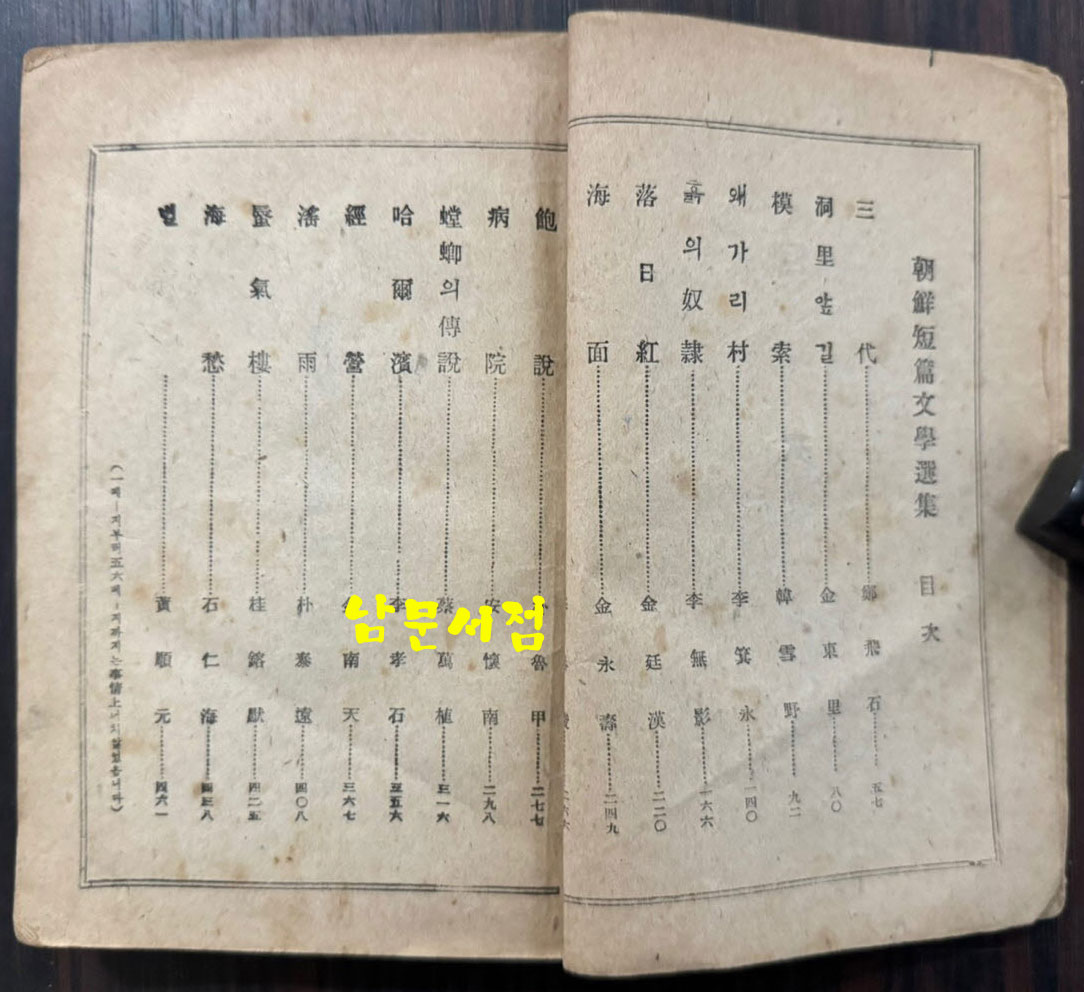 朝鮮短篇文學選集 目次
三代 鄭飛石 五七
洞里앞길 金東里 八〇
模索 韓雪野 九二
왜가리村 李箕永 一四〇
흙의奴隷 李無影 一六六
落日紅 金廷漢 二二〇
海面 金永壽 二四九
二六六
飽說 魯甲 二七七
病院 安懷南 二九八
螳螂의傳說 蔡萬植 三一六
哈爾濱 李孝石 三五六
經營 南天 三六七
瀿雨 朴泰遠 四〇八
蜃氣樓 桂鎔默 四二五
海愁 石仁海 四三八
별 黃順元 四六一
(一페ー지부터五六페ー지까지는事情上
남문서점